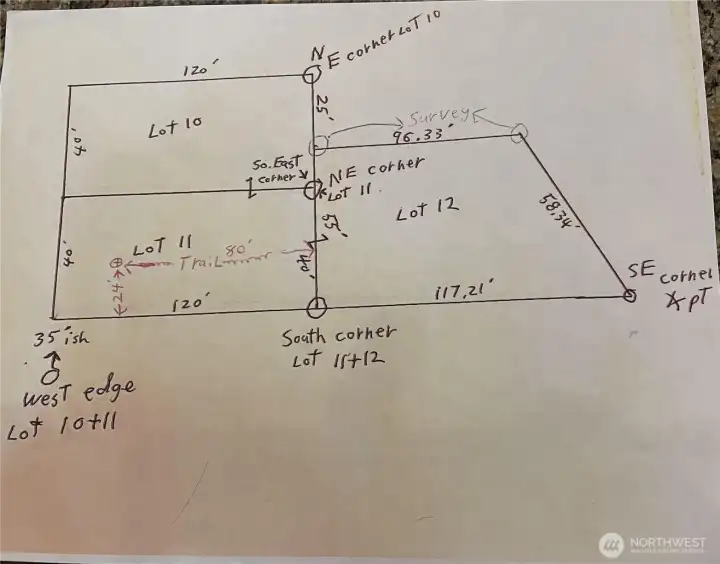 N
E corner LOT 10
120'
25'
Survey
96.33'
40'
Lot 10
So. East
corner
NE corner
Lot 11.
Lot 12
55'
58.34'
Lot 11
80'
Trail
40'
24'
40'
SE corner
pT
120'
117.21'
35'ish
South corner
Lot 11+12
West edge
Lot 10+11
NORTHWEST